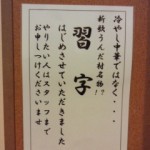 冷やし中華ではなく・・・・
新秋うんだ村名物!?
習字
はじめさせていただきました
やりたい人はスタッフまで
お申しつけくださいませ